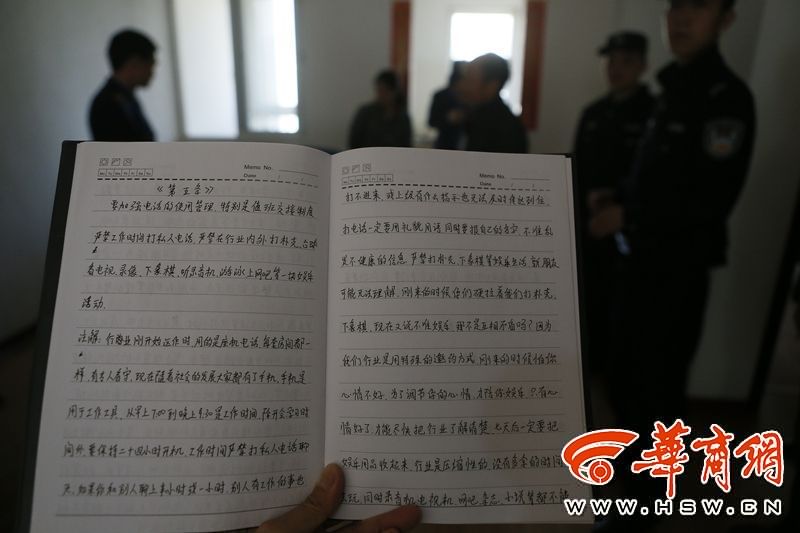 Memo No.
Mo Tu We Th Fr Sa Su
Date
《第五条》
要加强电话的使用管理，特别是值班交接制度
严禁工作时间打私人电话，严禁在行业内外打扑克、占
看电视、录像、下象棋、听录音机、游泳上网吧等一切娱乐
活动.
注解：行商业刚开始运作时，用的是座机电话，每套房间都一
样，有专人看守，现在随着社会的发展大家都有了手机，手机是
用于工作工具，从早上7:00到晚上9:30是工作时间，除开会学习时
间外，要保持二十四小时开机，工作时间严禁打私人电话聊
天，如果你和别人聊上半小时或一小时，别人有工作的事也
Memo No.
Mo Tu We Th Fr Sa Su
Date
打不进来，或上级有什么指示也无法及时传达到位.
打电话一定要用礼貌用语，同时要报自己的名字，不准乱
发不健康的信息，严禁打扑克、下象棋等娱乐生活，新朋友
可能无法理解，刚来的时候你们硬拉着我们打扑克、
下象棋，现在又说不准娱乐，那不是互相矛盾吗？因为
我们行业是用特殊的邀约方式，刚来的时候怕你
心情不好，为了调节你的心情，才陪你娱乐，只有心
情好了，才能尽快把行业了解清楚，七天后一定要把
娱乐用品收起来，行业是压缩性的，没有多余的时间
去玩，同时录音机、电视机、网吧、杂志、小说等都不
華商網
WWW.HSW.CN